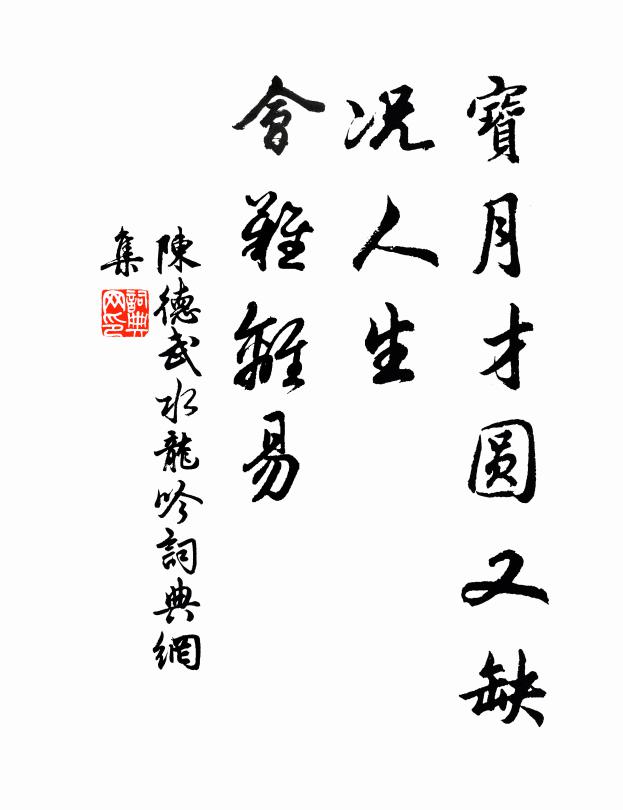 寶月才圓又缺
況人生
會難離易
陳德武水龍吟詞典網
集
詞典
网印